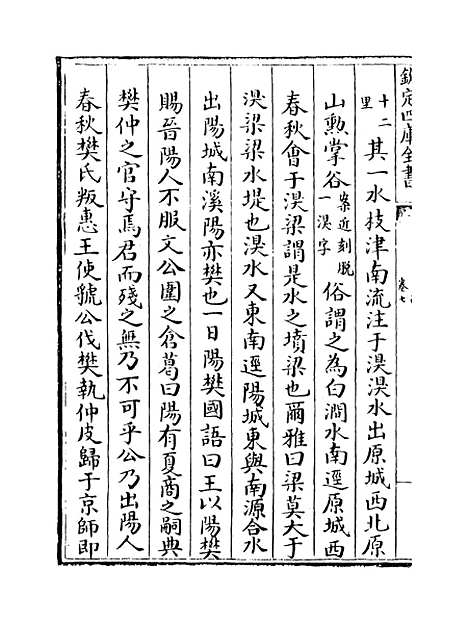 欽定四庫全書
卷七
十二里其一水枝津南流注于湨湨水出原城西北原
山勲掌谷案近刻脱一湨字俗謂之為白澗水南逕原城西
春秋會于湨梁謂是水之墳梁也爾雅曰梁莫大于
湨梁梁水堤也湨水又東南逕陽城東與南源合水
出陽城南溪陽亦樊也一曰陽樊國語曰王以陽樊
賜晉陽人不服文公圍之倉葛曰陽有夏商之嗣典
樊仲之官守焉君而殘之無乃不可乎公乃出陽人
春秋樊氏叛惠王使虢公伐樊執仲皮歸于京師即